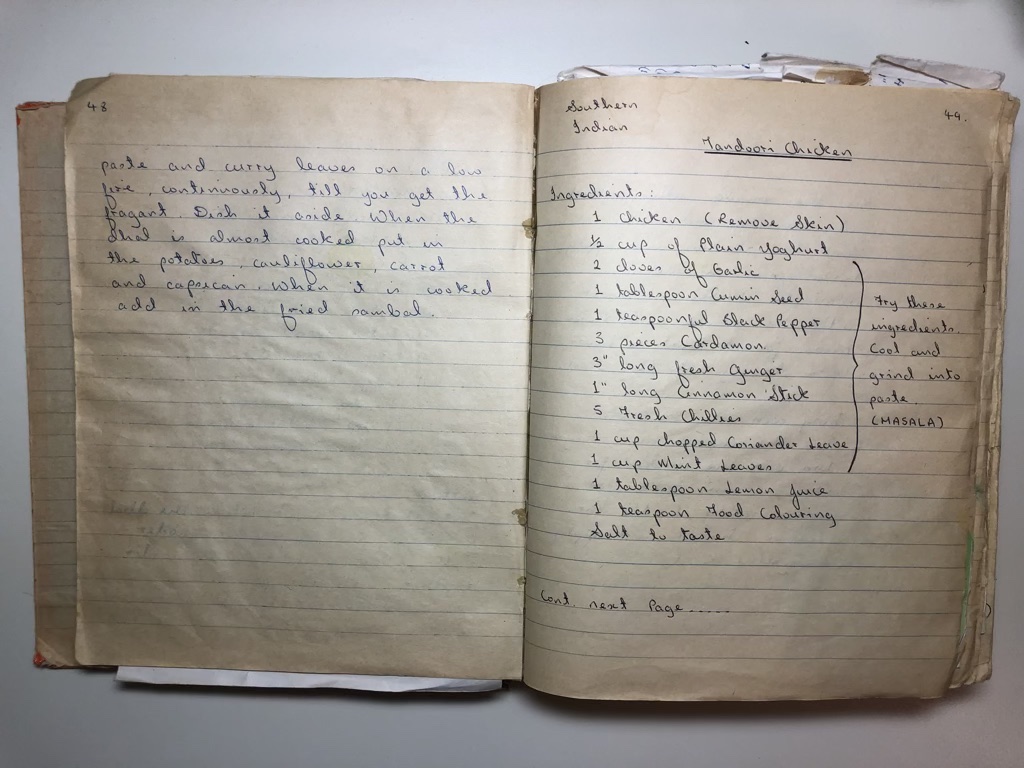 48
paste and curry leaves on a low
fire, continuously, till you get the
fragant. Dish it aside. When the
dhal is almost cooked put in
the potatoes, cauliflower, carrot
and capsican. When it is cooked
add in the fried sambal.
Southern
Indian
49.
Tandoori Chicken
Ingredients:
1 chicken (Remove Skin)
½ cup of Plain Yoghurt
2 cloves of Garlic
1 tablespoon Cumin Seed
1 teaspoonful Black Pepper
3 pieces Cardamon
3" long fresh Ginger
1" long Cinnamon Stick
5 Fresh Chillies
1 cup chopped Coriander Leave
1 cup Mint Leaves
Fry these
ingredients.
Cool and
grind into
paste.
(MASALA)
1 tablespoon Lemon Juice
1 teaspoon Food Colouring
Salt to taste
Cont. next Page......